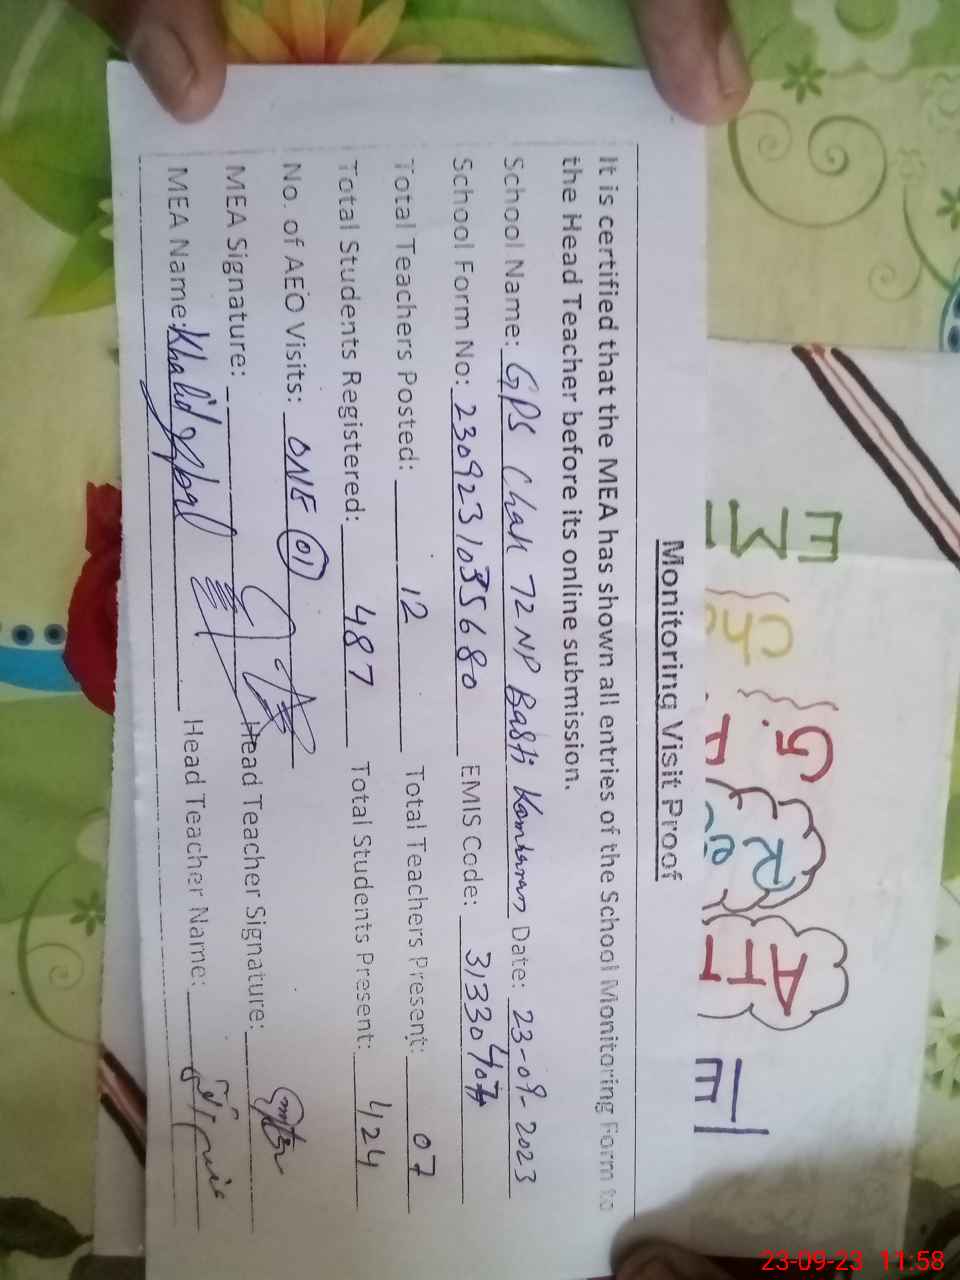 Monitoring Visit Proof
It is certified that the MEA has shown all entries of the School Monitoring Form to
the Head Teacher before its online submission.
School Name: GPS Chak 72 NP Basti Date: 23-09-2023
School Form No: 230923 1035680 EMIS Code: 31330407
Total Teachers Posted: 12 Total Teachers Present: 07
Total Students Registered: 487 Total Students Present: 424
No. of AEO Visits: ONE 01
MEA Signature: Head Teacher Signature:
MEA Name: Khalid Iqbal Head Teacher Name:
23-09-23 11:58